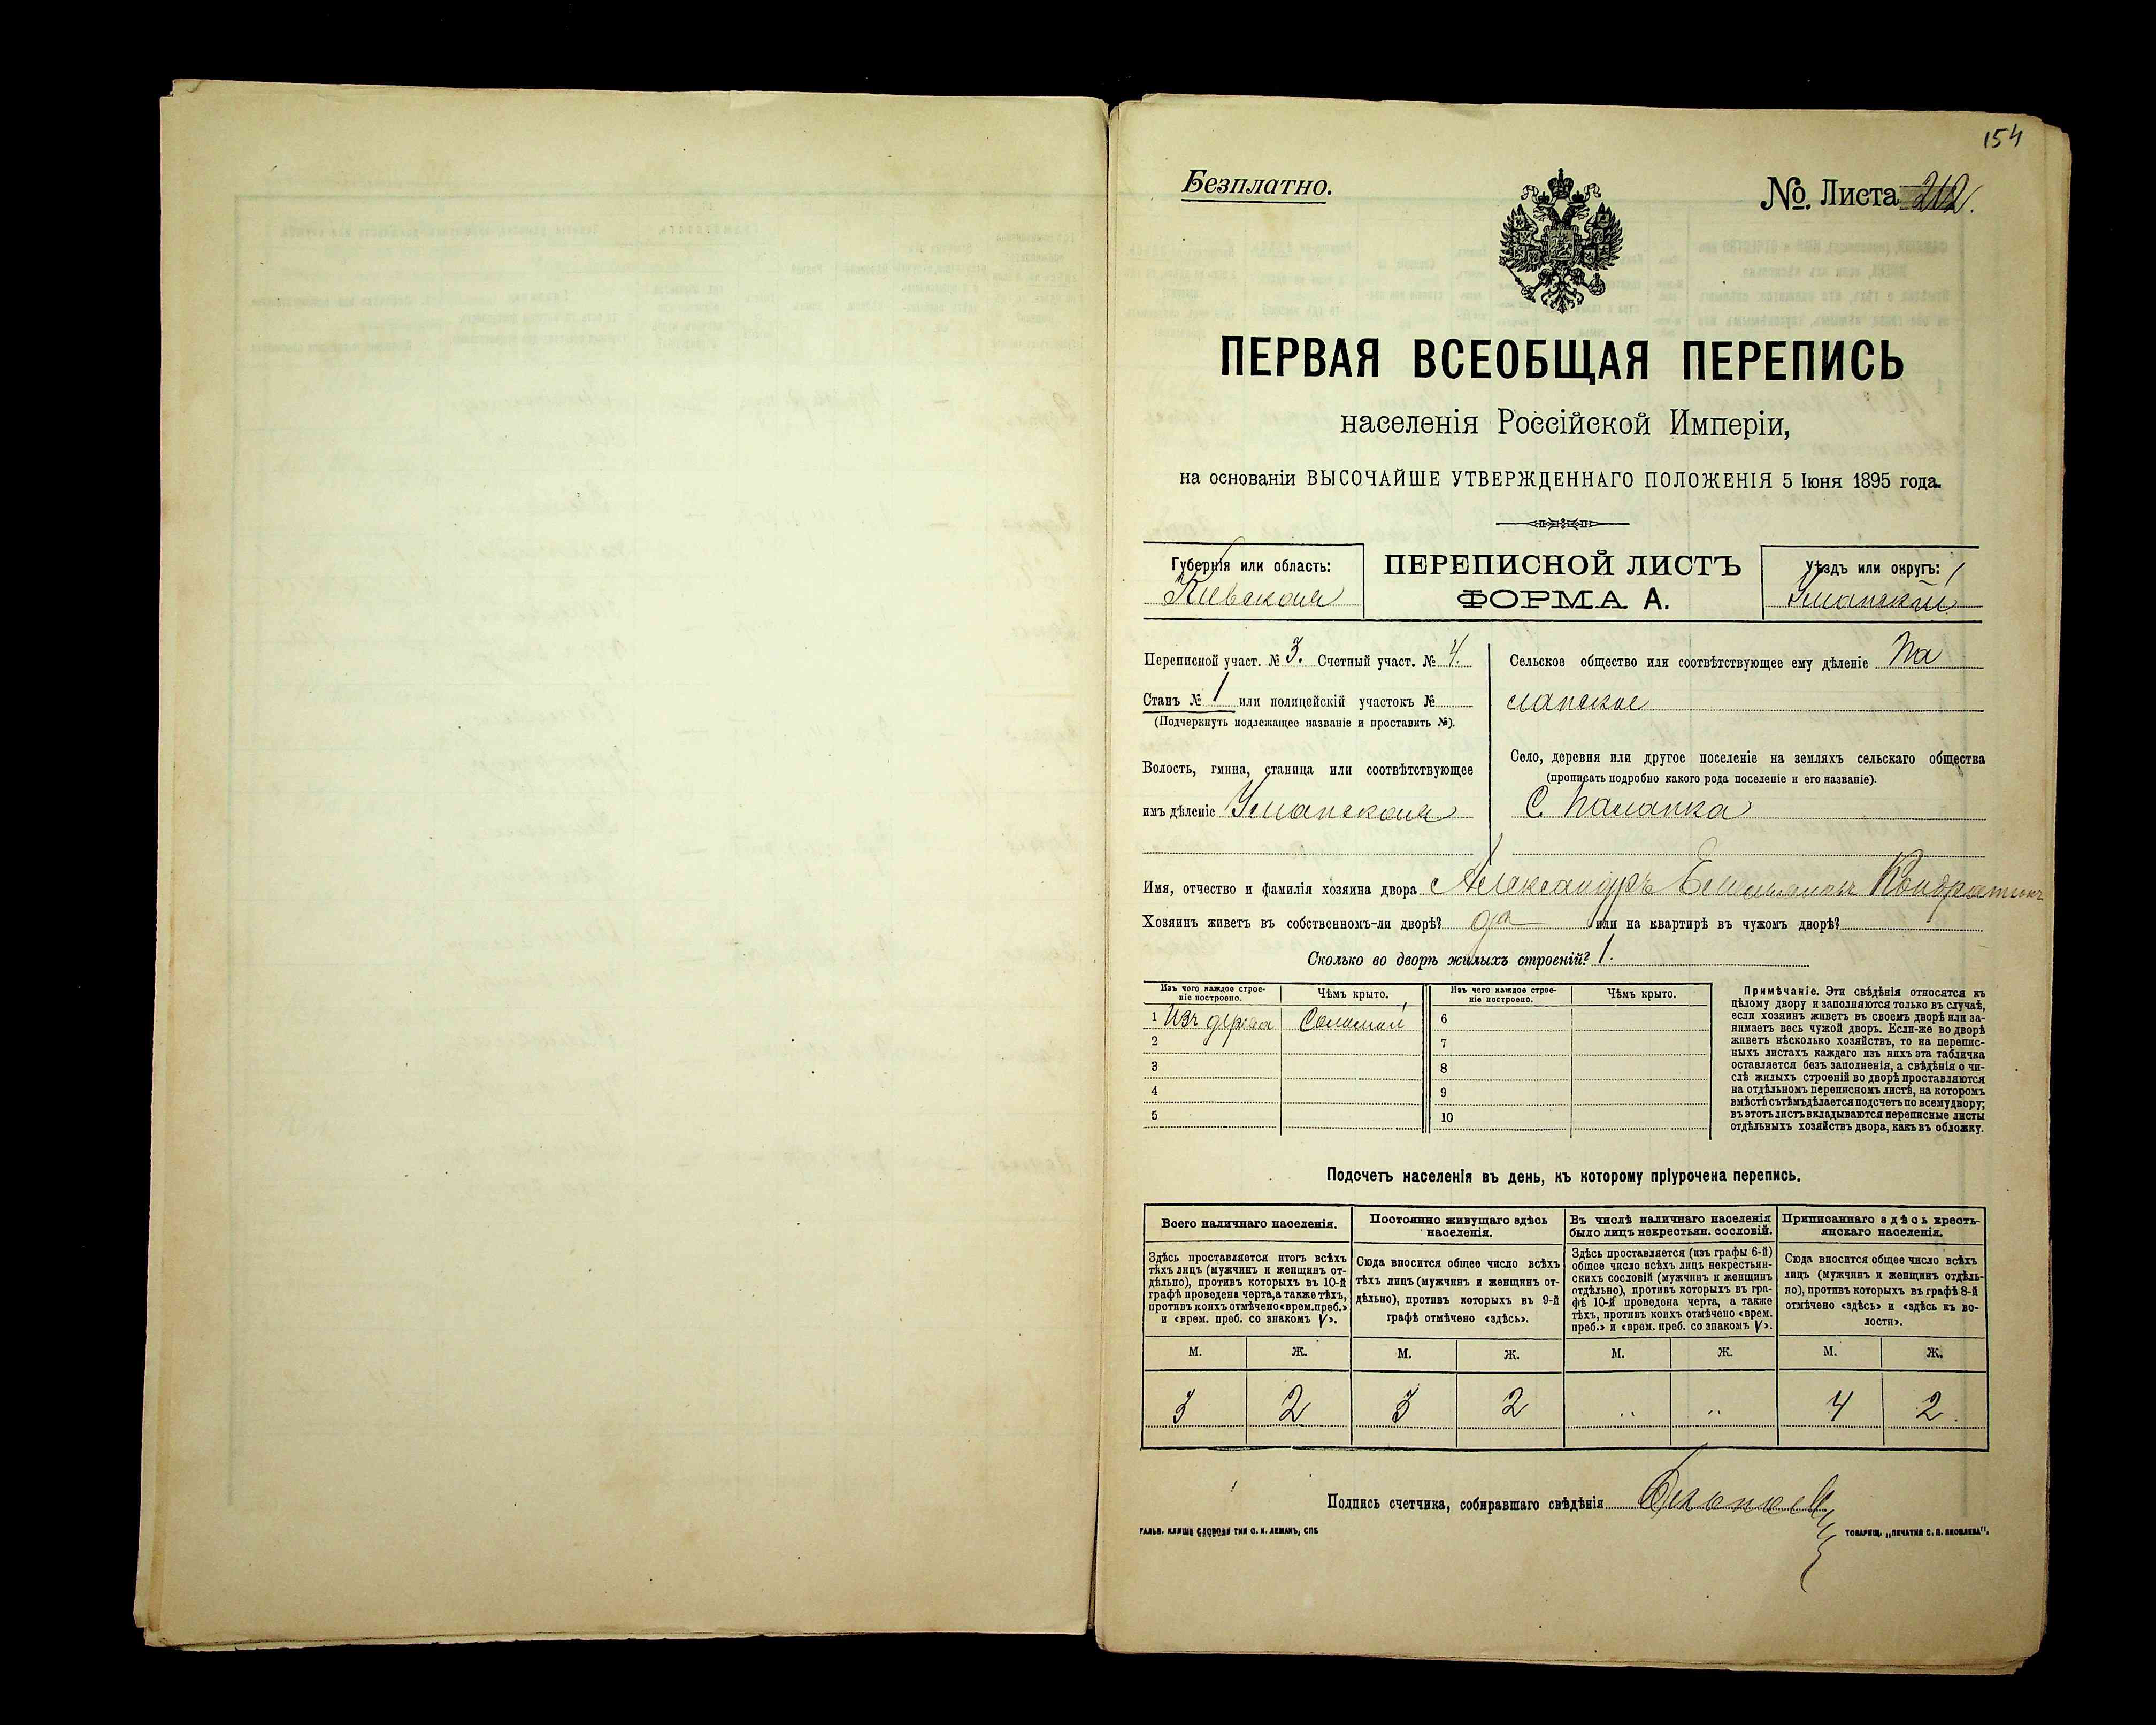 154
Безплатно.
№ Листа 212.
ПЕРВАЯ ВСЕОБЩАЯ ПЕРЕПИСЬ
населенія Россійской Имперіи,
на основаніи ВЫСОЧАЙШЕ УТВЕРЖДЕННАГО ПОЛОЖЕНІЯ 5 Іюня 1895 года.
Губернія или область:
Кіевская
ПЕРЕПИСНОЙ ЛИСТЪ
ФОРМА А.
Уѣздъ или округъ:
Уманскій
Переписной участ. № 3. Счетный участ. № 4.
Станъ № 1 или полицейскій участокъ №
(Подчеркнуть подлежащее названіе и проставить №).
Волость, гмина, станица или соотвѣтствующее
имъ дѣленіе Уманская
Сельское общество или соотвѣтствующее ему дѣленіе Па
ланское
Село, деревня или другое поселеніе на земляхъ сельскаго общества
(прописать подробно какого рода поселеніе и его названіе).
С. Паланка
Имя, отчество и фамилія хозяина двора Александръ Кондратюкъ
Хозяинъ живетъ въ собственномъ-ли дворѣ? да или на квартирѣ въ чужомъ дворѣ?
Сколько во дворѣ жилыхъ строеній? 1.
Изъ чего каждое строе-
ніе построено.
Чѣмъ крыто.
Изъ чего каждое строе-
ніе построено.
Чѣмъ крыто.
1 Изъ дерева Соломой
2
3
4
5
6
7
8
9
10
Примѣчаніе. Эти свѣдѣнія относятся къ
цѣлому двору и заполняются только въ случаѣ,
если хозяинъ живетъ въ своемъ дворѣ или за-
нимаетъ весь чужой дворъ. Если-же во дворѣ
живетъ нѣсколько хозяйствъ, то на перепис-
ныхъ листахъ каждаго изъ нихъ эта табличка
оставляется безъ заполненія, а свѣдѣнія о чи-
слѣ жилыхъ строеній во дворѣ проставляются
на отдѣльномъ переписномъ листѣ, на которомъ
вмѣстѣ съ тѣмъ дѣлается подсчетъ по всему двору;
въ этотъ листъ вкладываются переписные листы
отдѣльныхъ хозяйствъ двора, какъ въ обложку.
Подсчетъ населенія въ день, къ которому пріурочена перепись.
Всего наличнаго населенія.
Здѣсь проставляется итогъ всѣхъ
тѣхъ лицъ (мужчинъ и женщинъ от-
дѣльно), противъ которыхъ въ 10-й
графѣ проведена черта, а также тѣхъ,
противъ коихъ отмѣчено «врем. преб.»
и «врем. преб. со знакомъ V».
Постоянно живущаго здѣсь
населенія.
Сюда вносится общее число всѣхъ
тѣхъ лицъ (мужчинъ и женщинъ от-
дѣльно), противъ которыхъ въ 9-й
графѣ отмѣчено «здѣсь».
Въ числѣ наличнаго населенія
было лицъ некрестьян. сословій.
Здѣсь проставляется (изъ графы 6-й)
общее число всѣхъ лицъ некрестьян-
скихъ сословій (мужчинъ и женщинъ
отдѣльно), противъ которыхъ въ гра-
фѣ 10-й проведена черта, а также
тѣхъ, противъ коихъ отмѣчено «врем.
преб.» и «врем. преб. со знакомъ V».
Приписаннаго здѣсь кресть-
янскаго населенія.
Сюда вносится общее число всѣхъ
лицъ (мужчинъ и женщинъ отдѣль-
но), противъ которыхъ въ графѣ 8-й
отмѣчено «здѣсь» и «здѣсь къ во-
лости».
М. Ж. М. Ж. М. Ж. М. Ж.
3 2 3 2 .. .. 4 2.
Подпись счетчика, собиравшаго свѣдѣнія
ГАЛЬВ. КЛИШЕ СЛОВОЛИ ТНИ О. И. ЛЕМАНЪ, СПБ
ТОВАРИЩ. „ПЕЧАТНЯ С. П. ЯКОВЛЕВА".